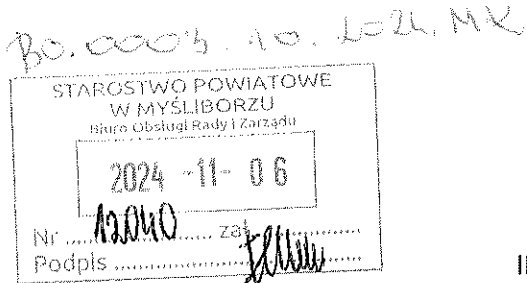 BO.0003.10.2024.MK
STAROSTWO POWIATOWE
W MYŚLIBORZU
Biuro Obsługi Rady i Zarządu
2024 -11- 06
Nr ..... 12040 ..... zał. .....
Podpis .....